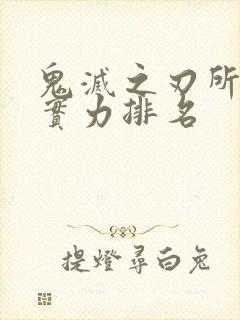 鬼滅之刃所
實力排名
提燈尋白兔